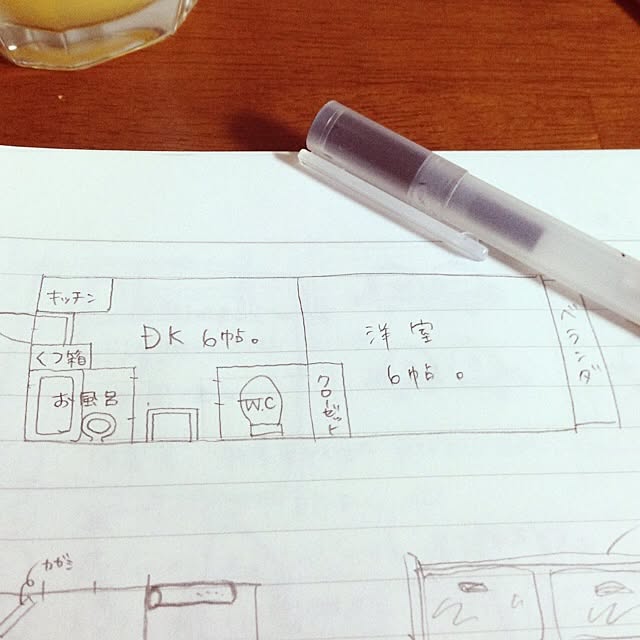 キッチン
DK 6帖。
洋室
6帖。
ベランダ
くつ箱
お風呂
W.C
クローゼット
カガミ